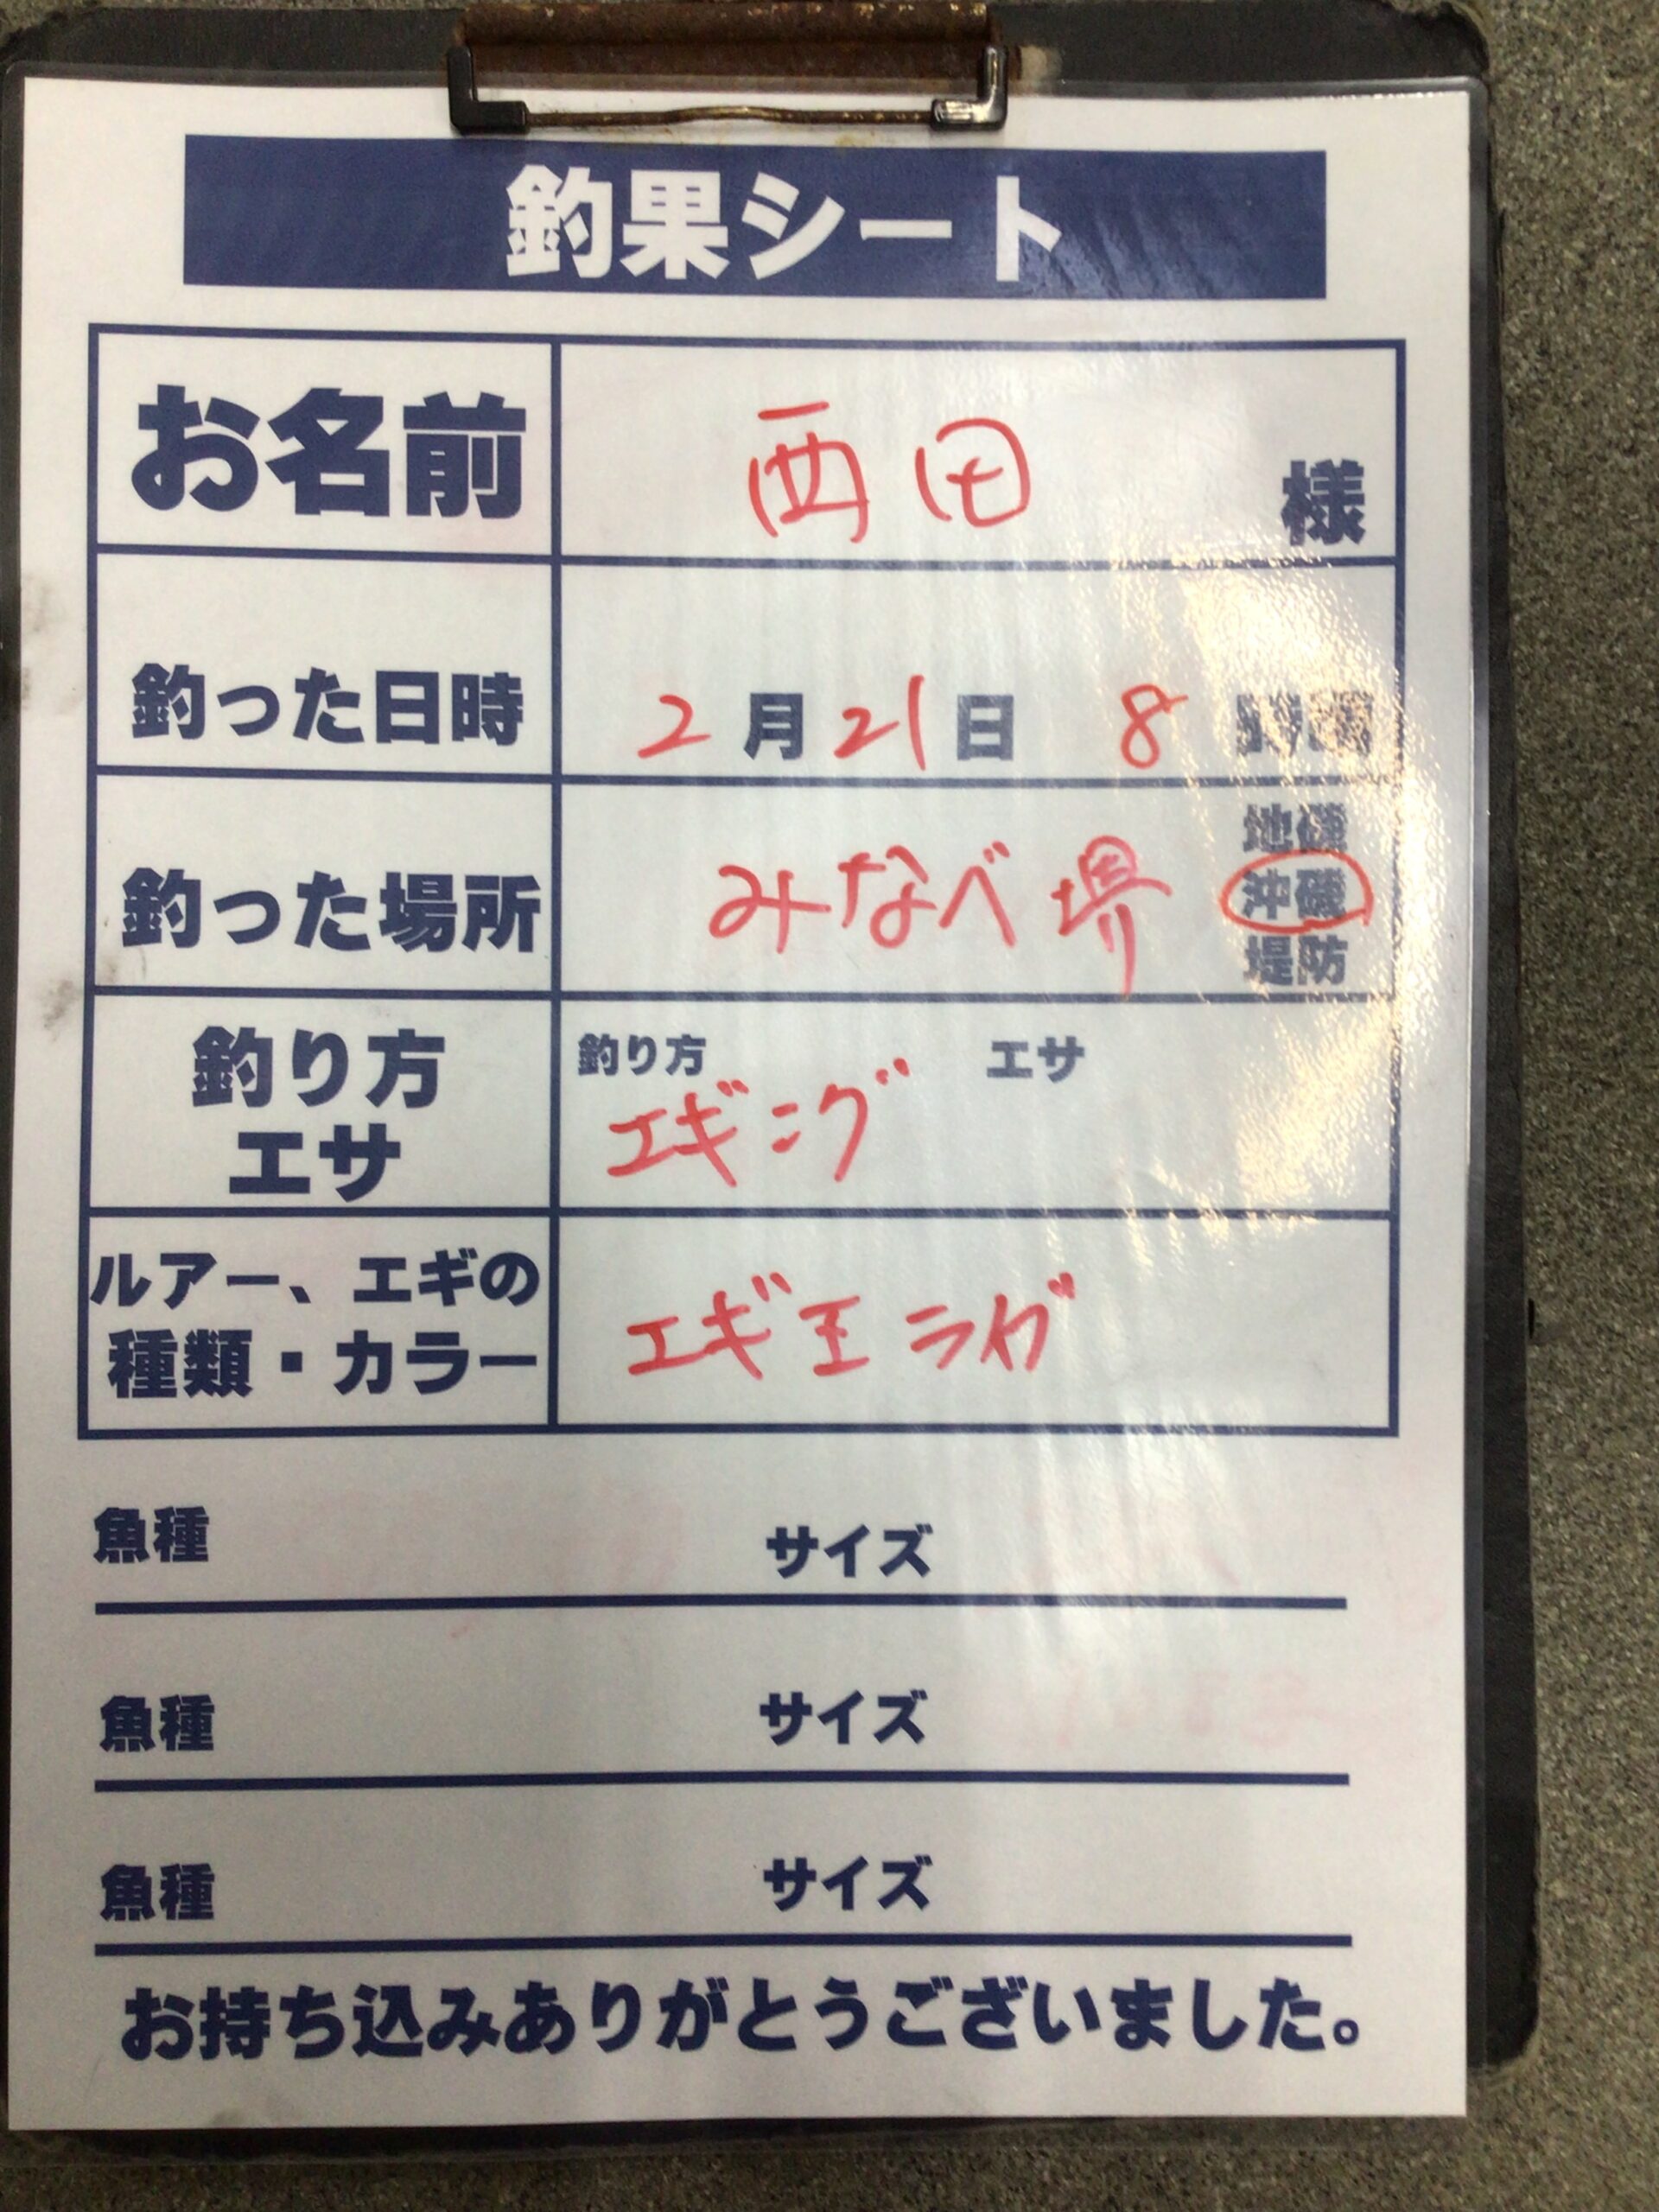 釣果シート
お名前 西田 様
釣った日時 2月21日 8
釣った場所 みなべ堺 地磯 沖磯 堤防
釣り方 エサ 釣り方 エギング エサ
ルアー、エギの種類・カラー エギ王 ライブ
魚種 サイズ
魚種 サイズ
魚種 サイズ
お持ち込みありがとうございました。